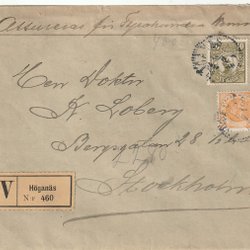 Assureras för Tjugohundra
Herr Doktor
K. Loberg
Bergsgatan 28
Stockholm
V
Höganäs
No 460